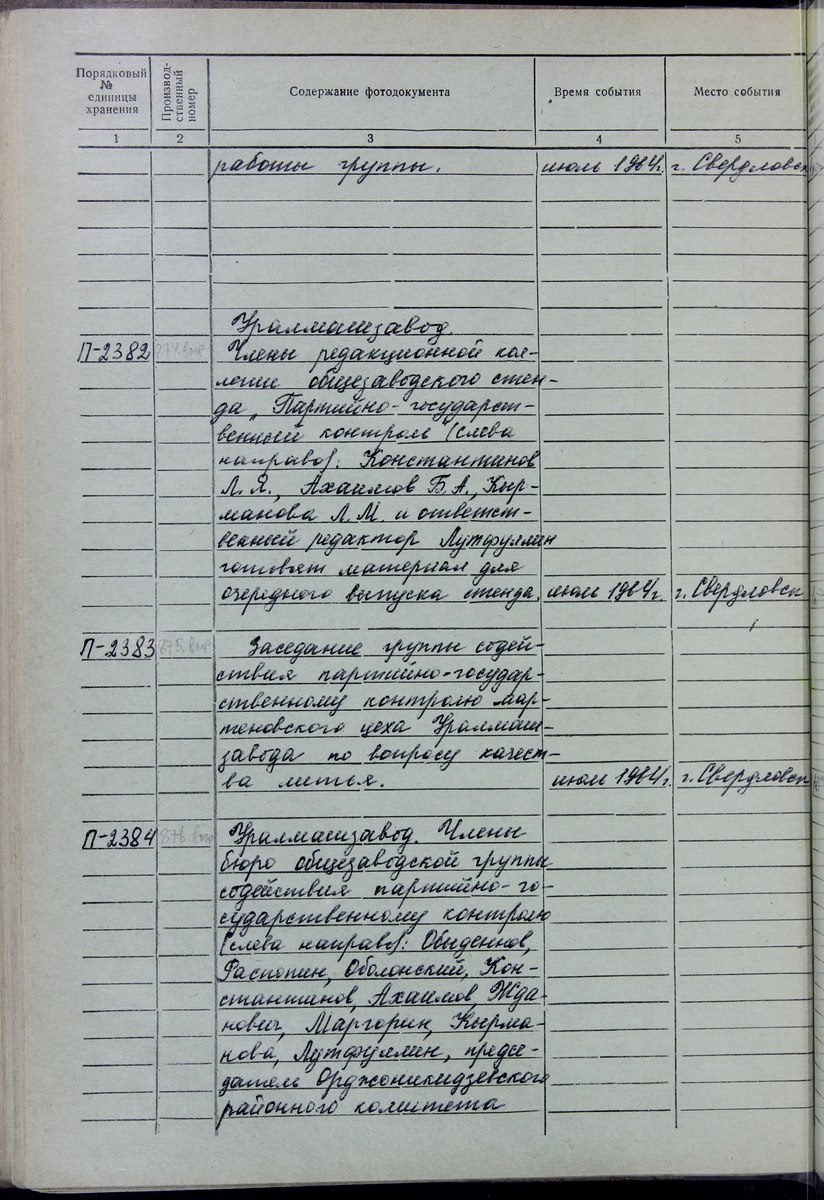 Порядковый № единицы хранения | Производ-ственный номер | Содержание фотодокумента | Время события | Место события
1 | 2 | 3 | 4 | 5
работы группы. | июль 1964г. | г. Свердловск
Уралмашзавод.
П-2382 | Члены редакционной кол-
легии общезаводского стен-
да „Партийно-государст-
венный контроль" (слева
направо): Константинов
Л.Я., Ахаимов Б.А., Кыр-
манова Л.М. и ответст-
венный редактор Лутфуллин
готовят материал для
очередного выпуска стенда. | июль 1964г. | г. Свердловск
П-2383 | 875.вмр | Заседание группы содей-
ствия партийно-государ-
ственному контролю мар-
теновского цеха Уралмаш-
завода по вопросу качест-
ва литья. | июль 1964г. | г. Свердловск
П-2384 | 876.вмр | Уралмашзавод. Члены
бюро общезаводской группы
содействия партийно-го-
сударственному контролю
(слева направо): Обыденнов,
Распопин, Оболонский, Кон-
стантинов, Ахаимов, Жда-
нович, Маргорин, Кырма-
нова, Лутфуллин, предсе-
датель Орджоникидзевского
районного комитета